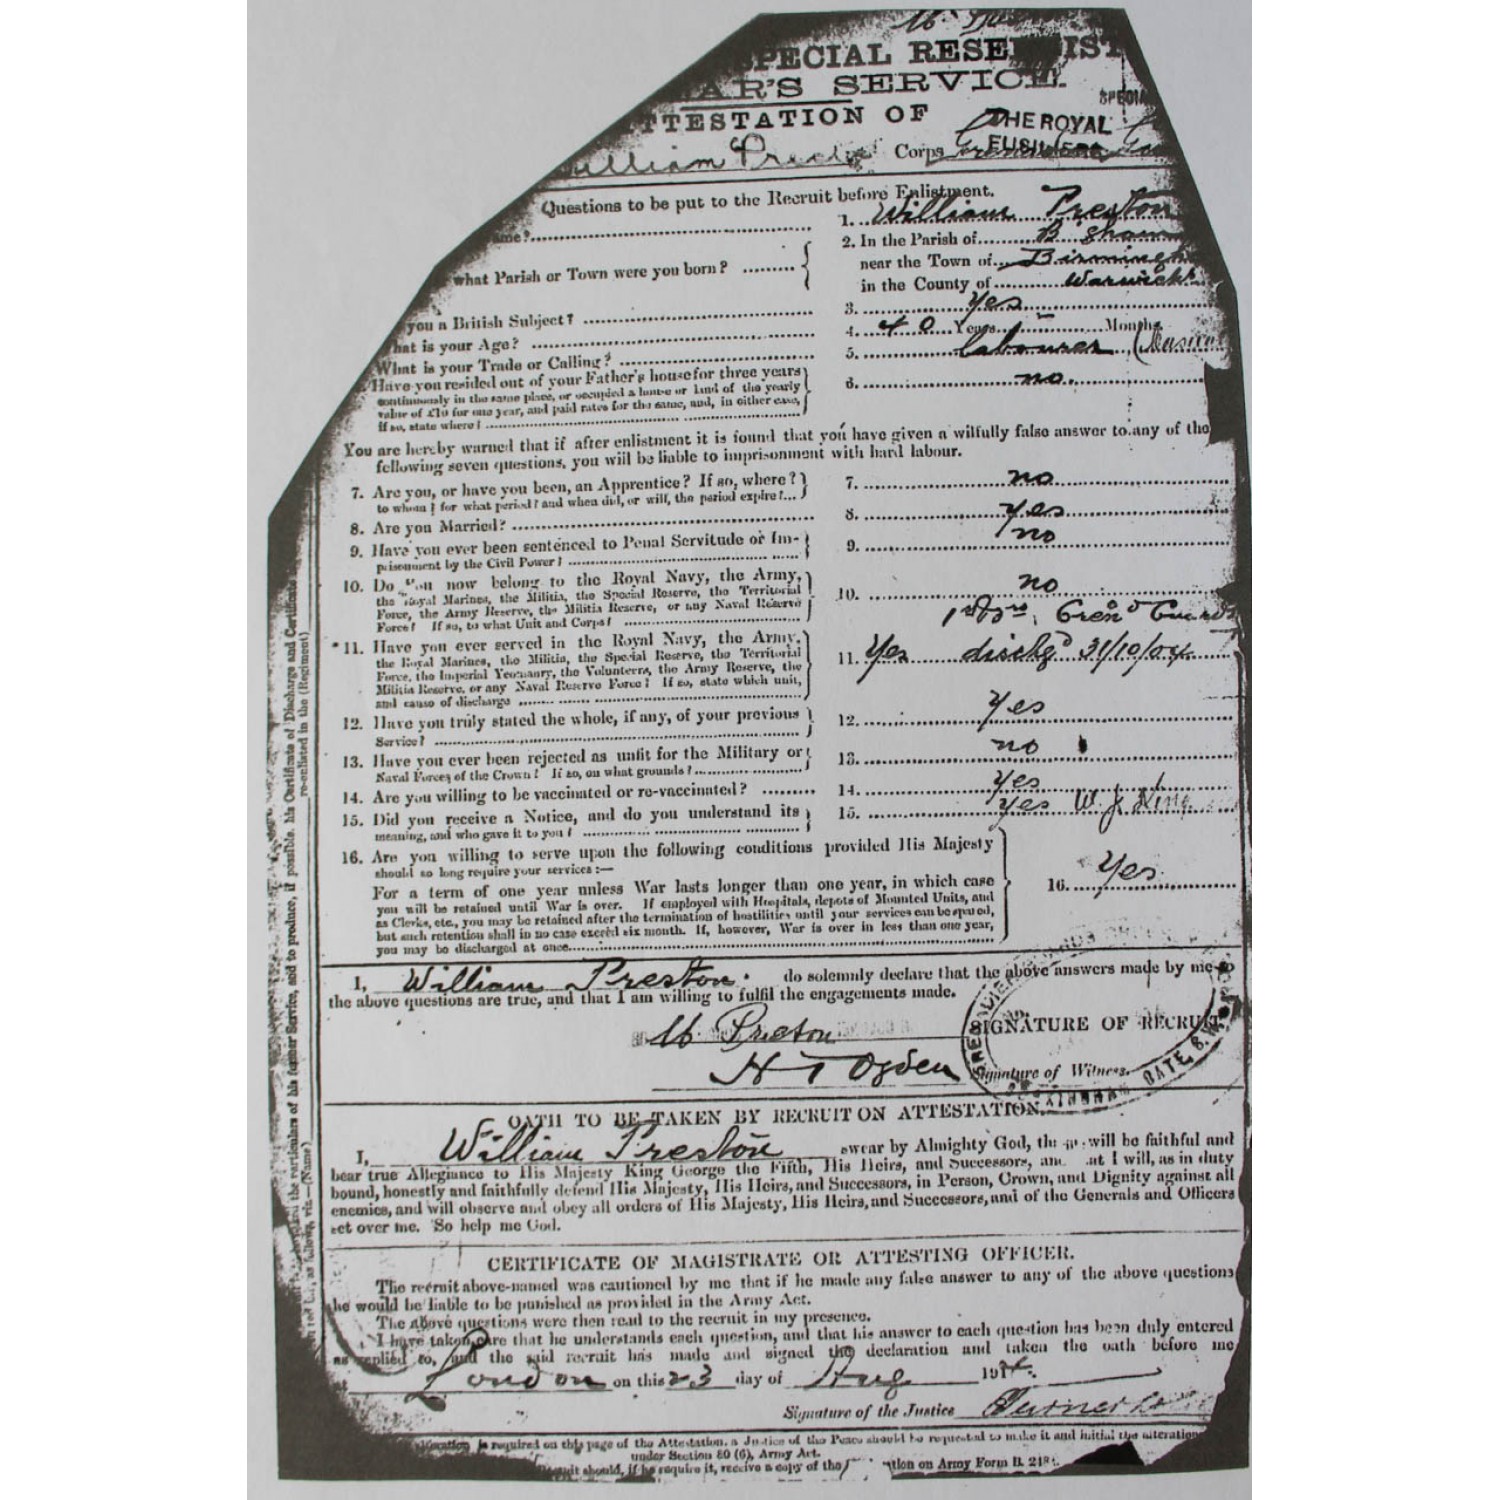 SPECIAL RESE IST
AR'S SERVICE.
SPECIA
TTESTATION OF
THE ROYAL
FUSILIERS
William Corps
Questions to be put to the Recruit before Enlistment.
ame? 1. William Preston
what Parish or Town were you born? 2. In the Parish of B'ham
near the Town of Birmingh
in the County of Warwick
you a British Subject? 3. Yes
hat is your Age? 4. 40 Years — Months
What is your Trade or Calling? 5. labourer (Musici
Have you resided out of your Father's house for three years 6. no
continuously in the same place, or occupied a house or land of the yearly
value of £10 for one year, and paid rates for the same, and, in either case,
if so, state where?
You are hereby warned that if after enlistment it is found that you have given a wilfully false answer to any of the
following seven questions, you will be liable to imprisonment with hard labour.
7. Are you, or have you been, an Apprentice? If so, where? 7. no
to whom? for what period? and when did, or will, the period expire?
8. Are you Married? 8. yes
9. Have you ever been sentenced to Penal Servitude or Im- 9. no
prisonment by the Civil Power?
10. Do you now belong to the Royal Navy, the Army, 10. no
the Royal Marines, the Militia, the Special Reserve, the Territorial
Force, the Army Reserve, the Militia Reserve, or any Naval Reserve
Force? If so, to what Unit and Corps?
1st Bn. Gren'd Guards
*11. Have you ever served in the Royal Navy, the Army, 11. Yes dischg'd 31/10/04
the Royal Marines, the Militia, the Special Reserve, the Territorial
Force, the Imperial Yeomanry, the Volunteers, the Army Reserve, the
Militia Reserve, or any Naval Reserve Force? If so, state which unit,
and cause of discharge
12. Have you truly stated the whole, if any, of your previous 12. Yes
Service?
13. Have you ever been rejected as unfit for the Military or 13. no
Naval Forces of the Crown? If so, on what grounds?
14. Are you willing to be vaccinated or re-vaccinated? 14. Yes
15. Did you receive a Notice, and do you understand its 15. yes W. J. King
meaning, and who gave it to you?
16. Are you willing to serve upon the following conditions provided His Majesty
should so long require your services:—
For a term of one year unless War lasts longer than one year, in which case 16. Yes
you will be retained until War is over. If employed with Hospitals, depots of Mounted Units, and
as Clerks, etc., you may be retained after the termination of hostilities until your services can be spared,
but such retention shall in no case exceed six month. If, however, War is over in less than one year,
you may be discharged at once
I, William Preston do solemnly declare that the above answers made by me to
the above questions are true, and that I am willing to fulfil the engagements made.
W Preston SIGNATURE OF RECRUIT
H T Ogden Signature of Witness.
GATE, S.W.
OATH TO BE TAKEN BY RECRUIT ON ATTESTATION.
I, William Preston swear by Almighty God, th will be faithful and
bear true Allegiance to His Majesty King George the Fifth, His Heirs, and Successors, an at I will, as in duty
bound, honestly and faithfully defend His Majesty, His Heirs, and Successors, in Person, Crown, and Dignity against all
enemies, and will observe and obey all orders of His Majesty, His Heirs, and Successors, and of the Generals and Officers
set over me. So help me God.
CERTIFICATE OF MAGISTRATE OR ATTESTING OFFICER.
The recruit above-named was cautioned by me that if he made any false answer to any of the above questions
he would be liable to be punished as provided in the Army Act.
The above questions were then read to the recruit in my presence.
I have taken care that he understands each question, and that his answer to each question has been duly entered
as replied to, and the said recruit has made and signed the declaration and taken the oath before me
at London on this 23 day of Aug 1914.
Signature of the Justice
is required on this page of the Attestation, a Justice of the Peace should be requested to make it and initial the alteration
under Section 80 (6), Army Act.
uit should, if he require it, receive a copy of the tion on Army Form B. 21
his Certificate of Discharge and Certificate
re-enlisted in the (Regiment)
the particulars of his former Service, and to produce, if possible,
as follows, viz.—(Name)